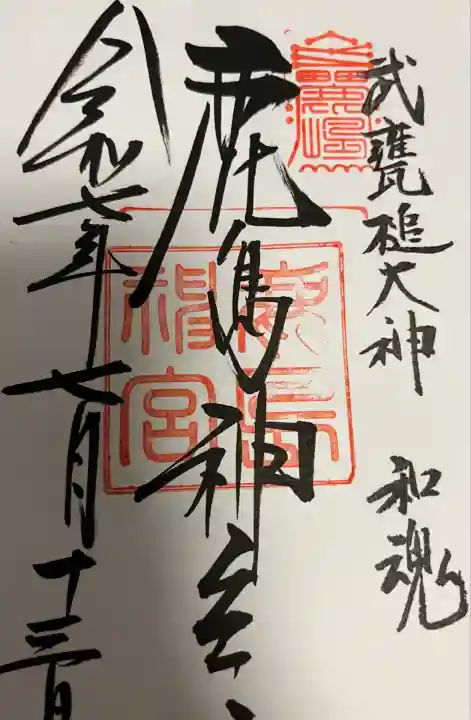 武甕槌大神 和魂
鹿島神宮
令和七年七月十三日
鹿島
神宮